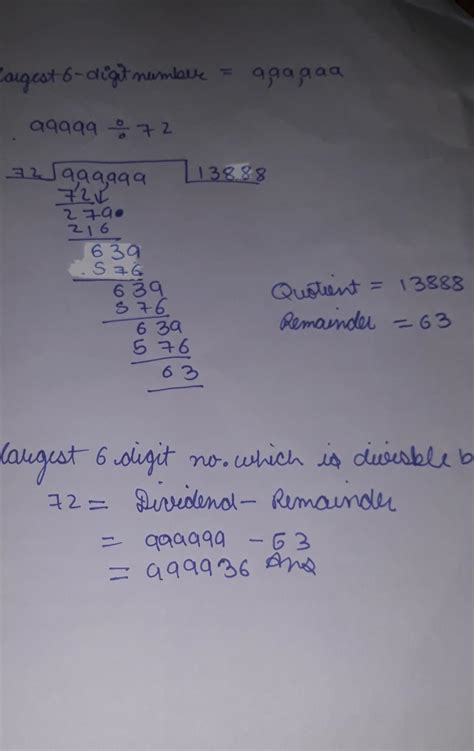 Largest 6-digit number = 999,999
99999 ÷ 72
72 999999 13888
72
279
216
639
576
639
576
639
576
63
Quotient = 13888
Remainder = 63
Largest 6 digit no. which is divisble b
72 = Dividend - Remainder
= 999999 - 63
= 999936 Ans